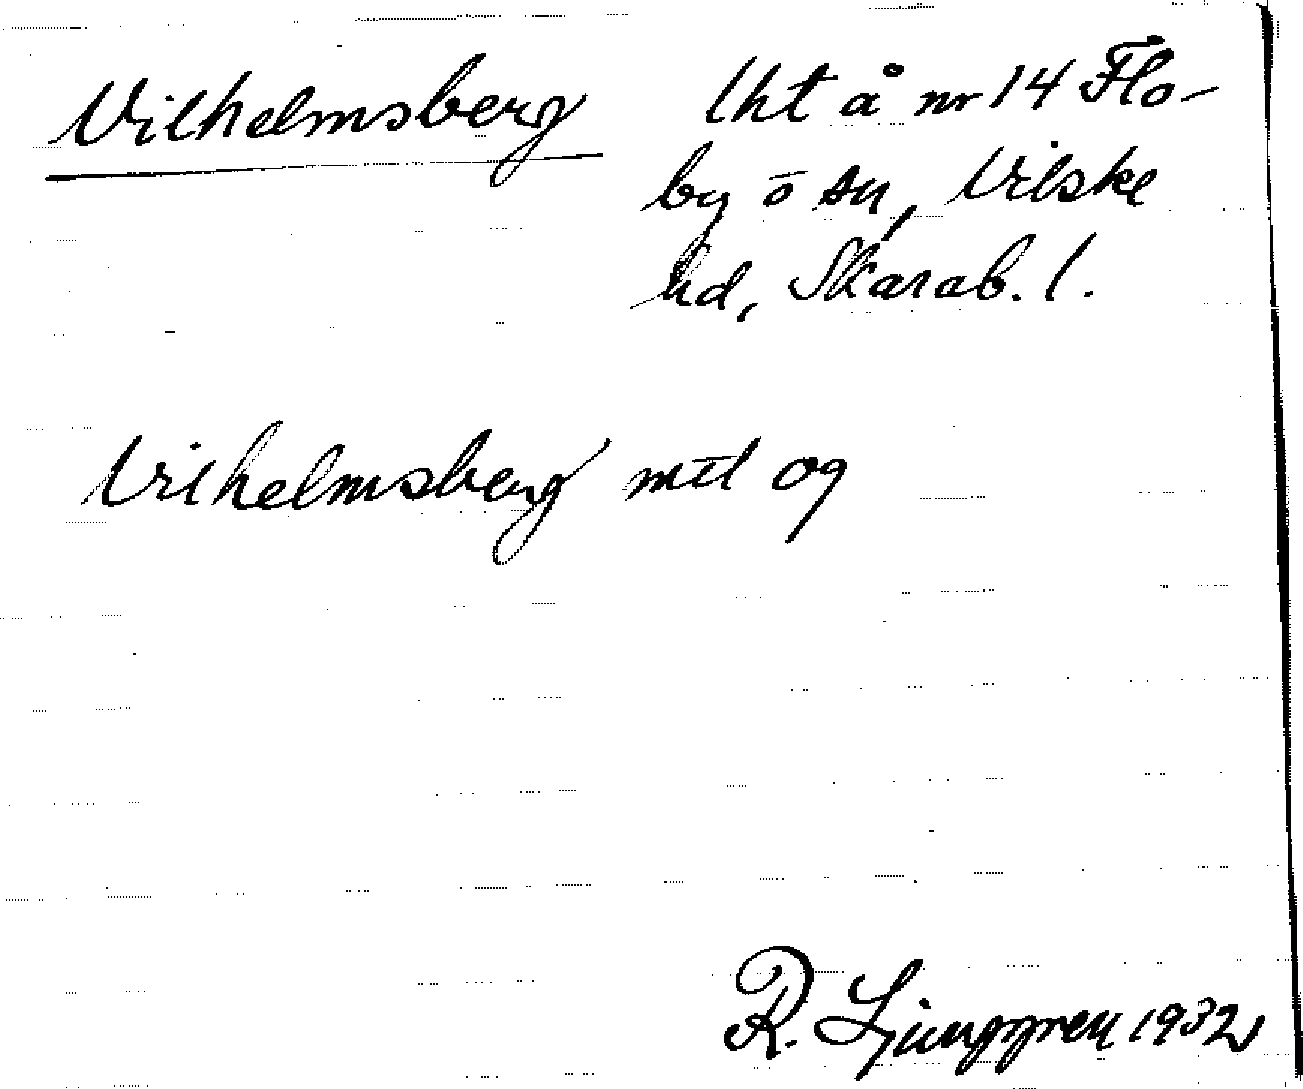 Vilhelmsberg lht å nr 14 Flo-
by ö sn, Vilske
hd, Skarab. l.
Vilhelmsberg mtl og
R. Ljunggren 1932